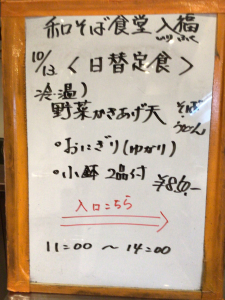 和そば食堂 入福
10/13 <日替定食>
冷・温)
野菜かきあげ天 そば
うどん
・おにぎり(ゆかり)
・小鉢 2品付
¥860-
入口こちら
11:00 ～ 14:00